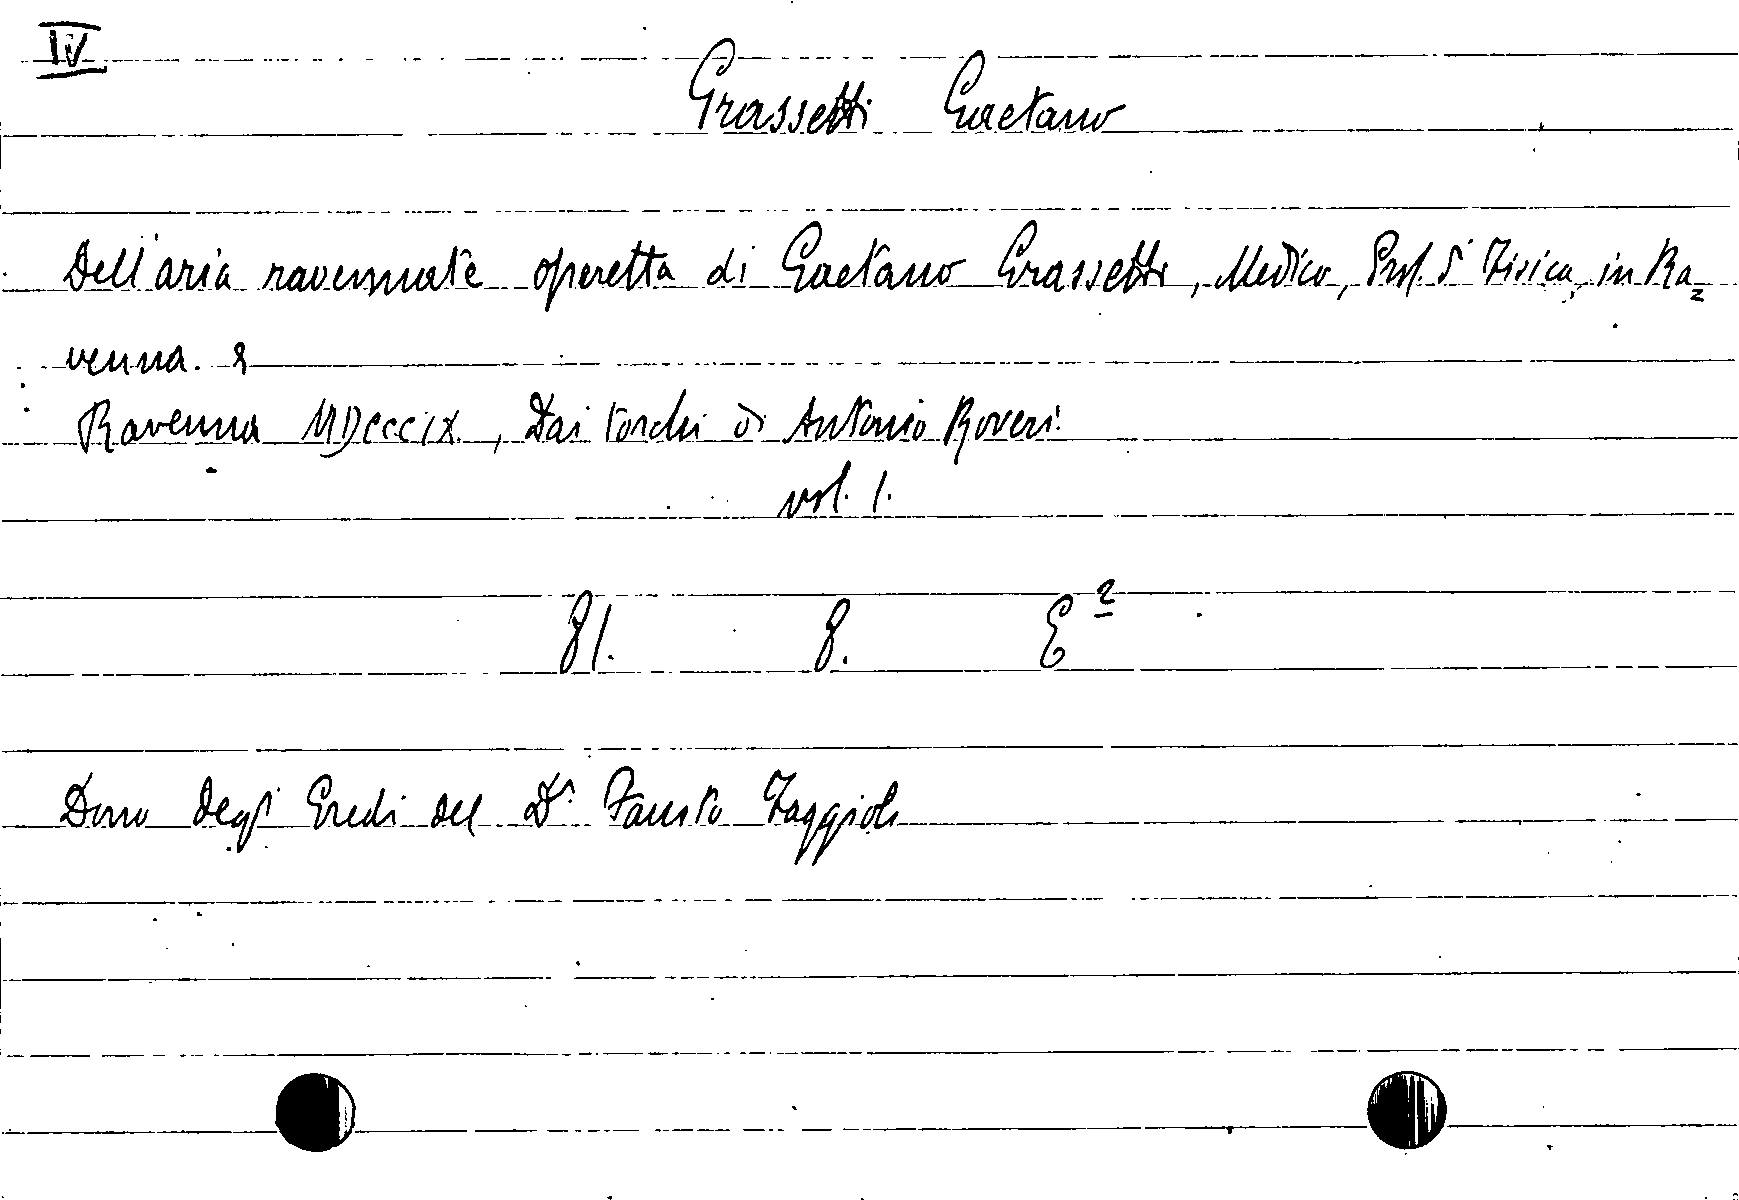 IV
Grassetti Gaetano
Dell'aria ravennate operetta di Gaetano Grassetti, Medico, Prof. di Fisica, in Ra=
venna.
Ravenna MDCCCIX., Dai torchi di Antonio Roveri.
vol. 1.
81. 8. E 2
Dono degli Eredi del Dr. Fausto Faggioli